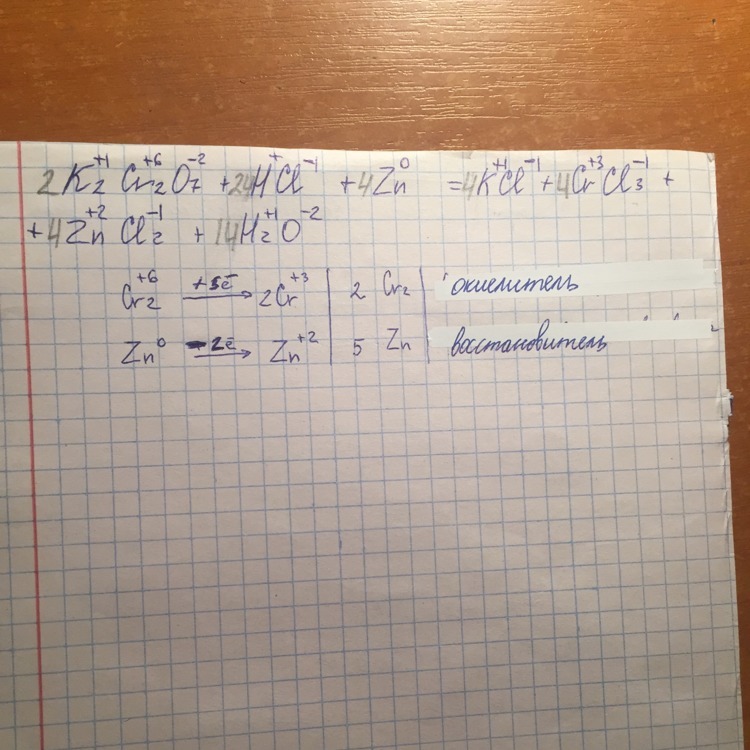 2K₂⁺¹Cr₂⁺⁶O₇⁻² + 24H⁺Cl⁻¹ + 4Zn⁰ = 4K⁺¹Cl⁻¹ + 4Cr⁺³Cl₃⁻¹ +
+ 4Zn⁺²Cl₂⁻¹ + 14H₂⁺¹O⁻²
Cr₂⁺⁶ +5ē → 2Cr⁺³ | 2 Cr₂ | окислитель
Zn⁰ -2ē → Zn⁺² | 5 Zn | восстановитель